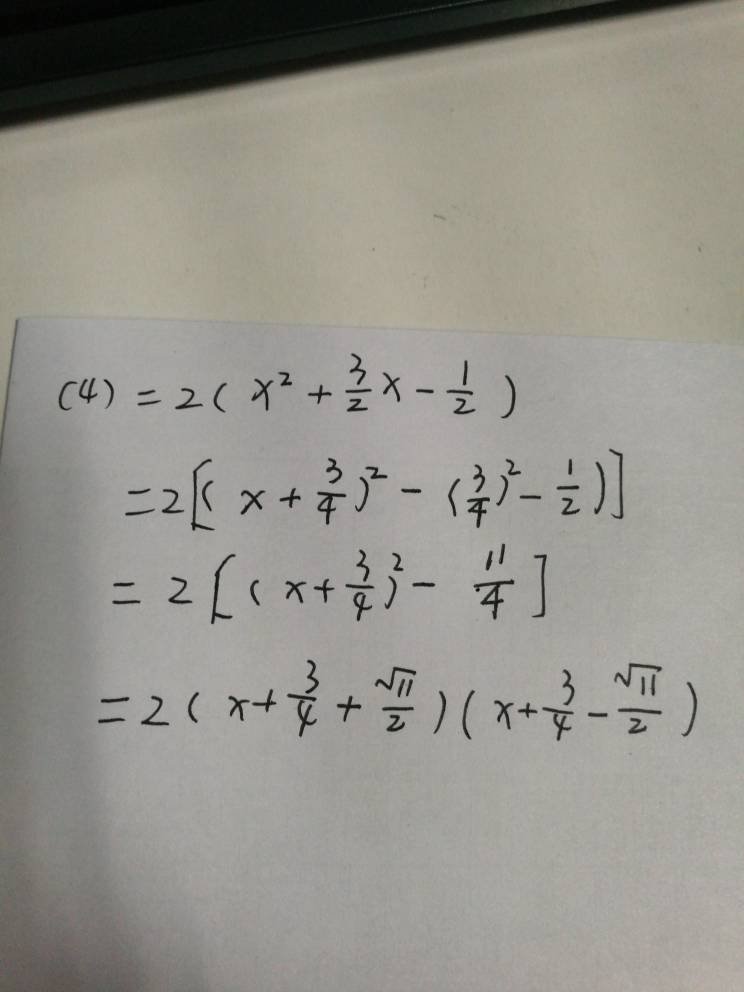 (4) = 2( x² + 3/2 x - 1/2 )
= 2[( x + 3/4 )² - (3/4)² - 1/2 )]
= 2[( x + 3/4 )² - 11/4 ]
= 2( x + 3/4 + √11/2 )( x + 3/4 - √11/2 )